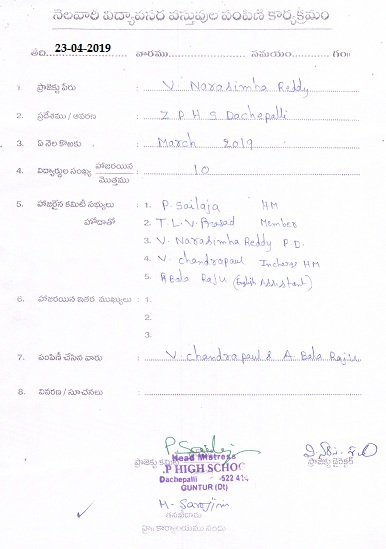 నెలవారీ విద్యావసర వస్తువుల పంపిణీ కార్యక్రమం
తేది 23-04-2019 వారము సమయం గం॥
1 ప్రాజెక్టు పేరు : V. Narasimha Reddy
2. ప్రదేశము / ఆవరణ : Z P H S Dachepalli
3. ఏ నెల కొఱకు : March 2019
4. విద్యార్థుల సంఖ్య హాజరయిన / మొత్తము : 10
5. హాజరైన కమిటి సభ్యులు : 1. P. Sailaja HM
హోదాతో 2. T.L.V. Prasad Member
3. V. Narasimha Reddy P.D.
4. V. chandrapaul Incharge HM
5. A Bala Raju (English Assistant)
6. హాజరయిన ఇతర ముఖ్యులు : 1.
2.
3.
7. పంపిణీ చేసిన వారు : V. chandrapaul & A Bala Raju
8. వివరణ / సూచనలు :
P. Sailaja
Head Mistress
ప్రాజెక్టు ప్రాజెక్టు డైరెక్టర్
.P HIGH SCHOO
Dachepalli -522 414
GUNTUR (Dt)
M. Sarojini